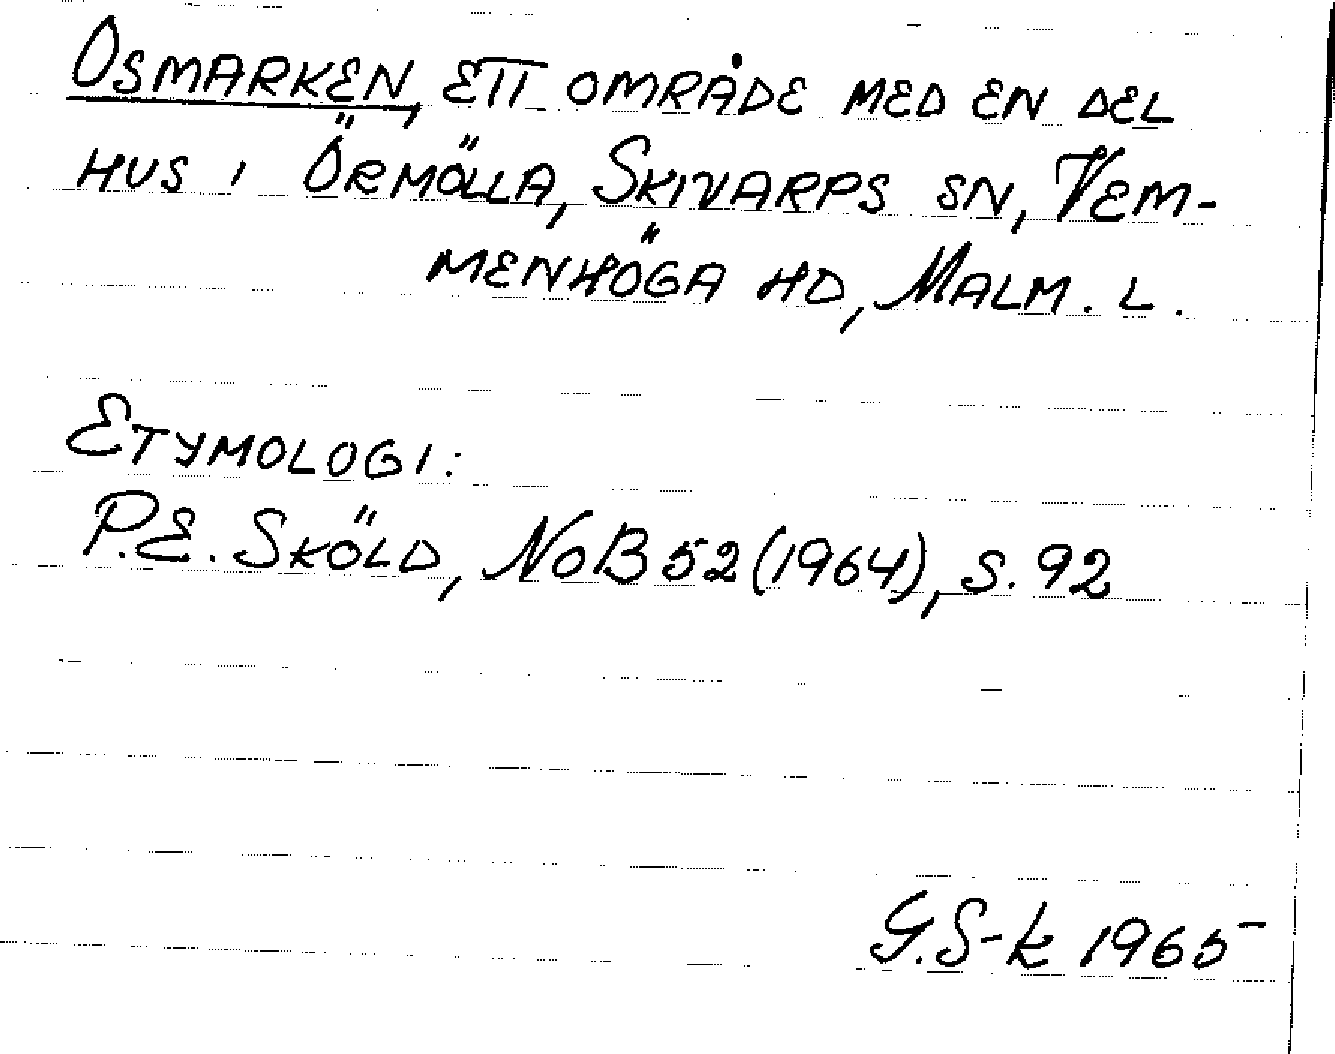 Osmarken, ett område med en del
hus i Örmölla, Skivarps sn, Vem-
menhöga hd, Malm. l.
Etymologi:
P.E. Sköld, NoB 52 (1964), s. 92
G.S-k 1965